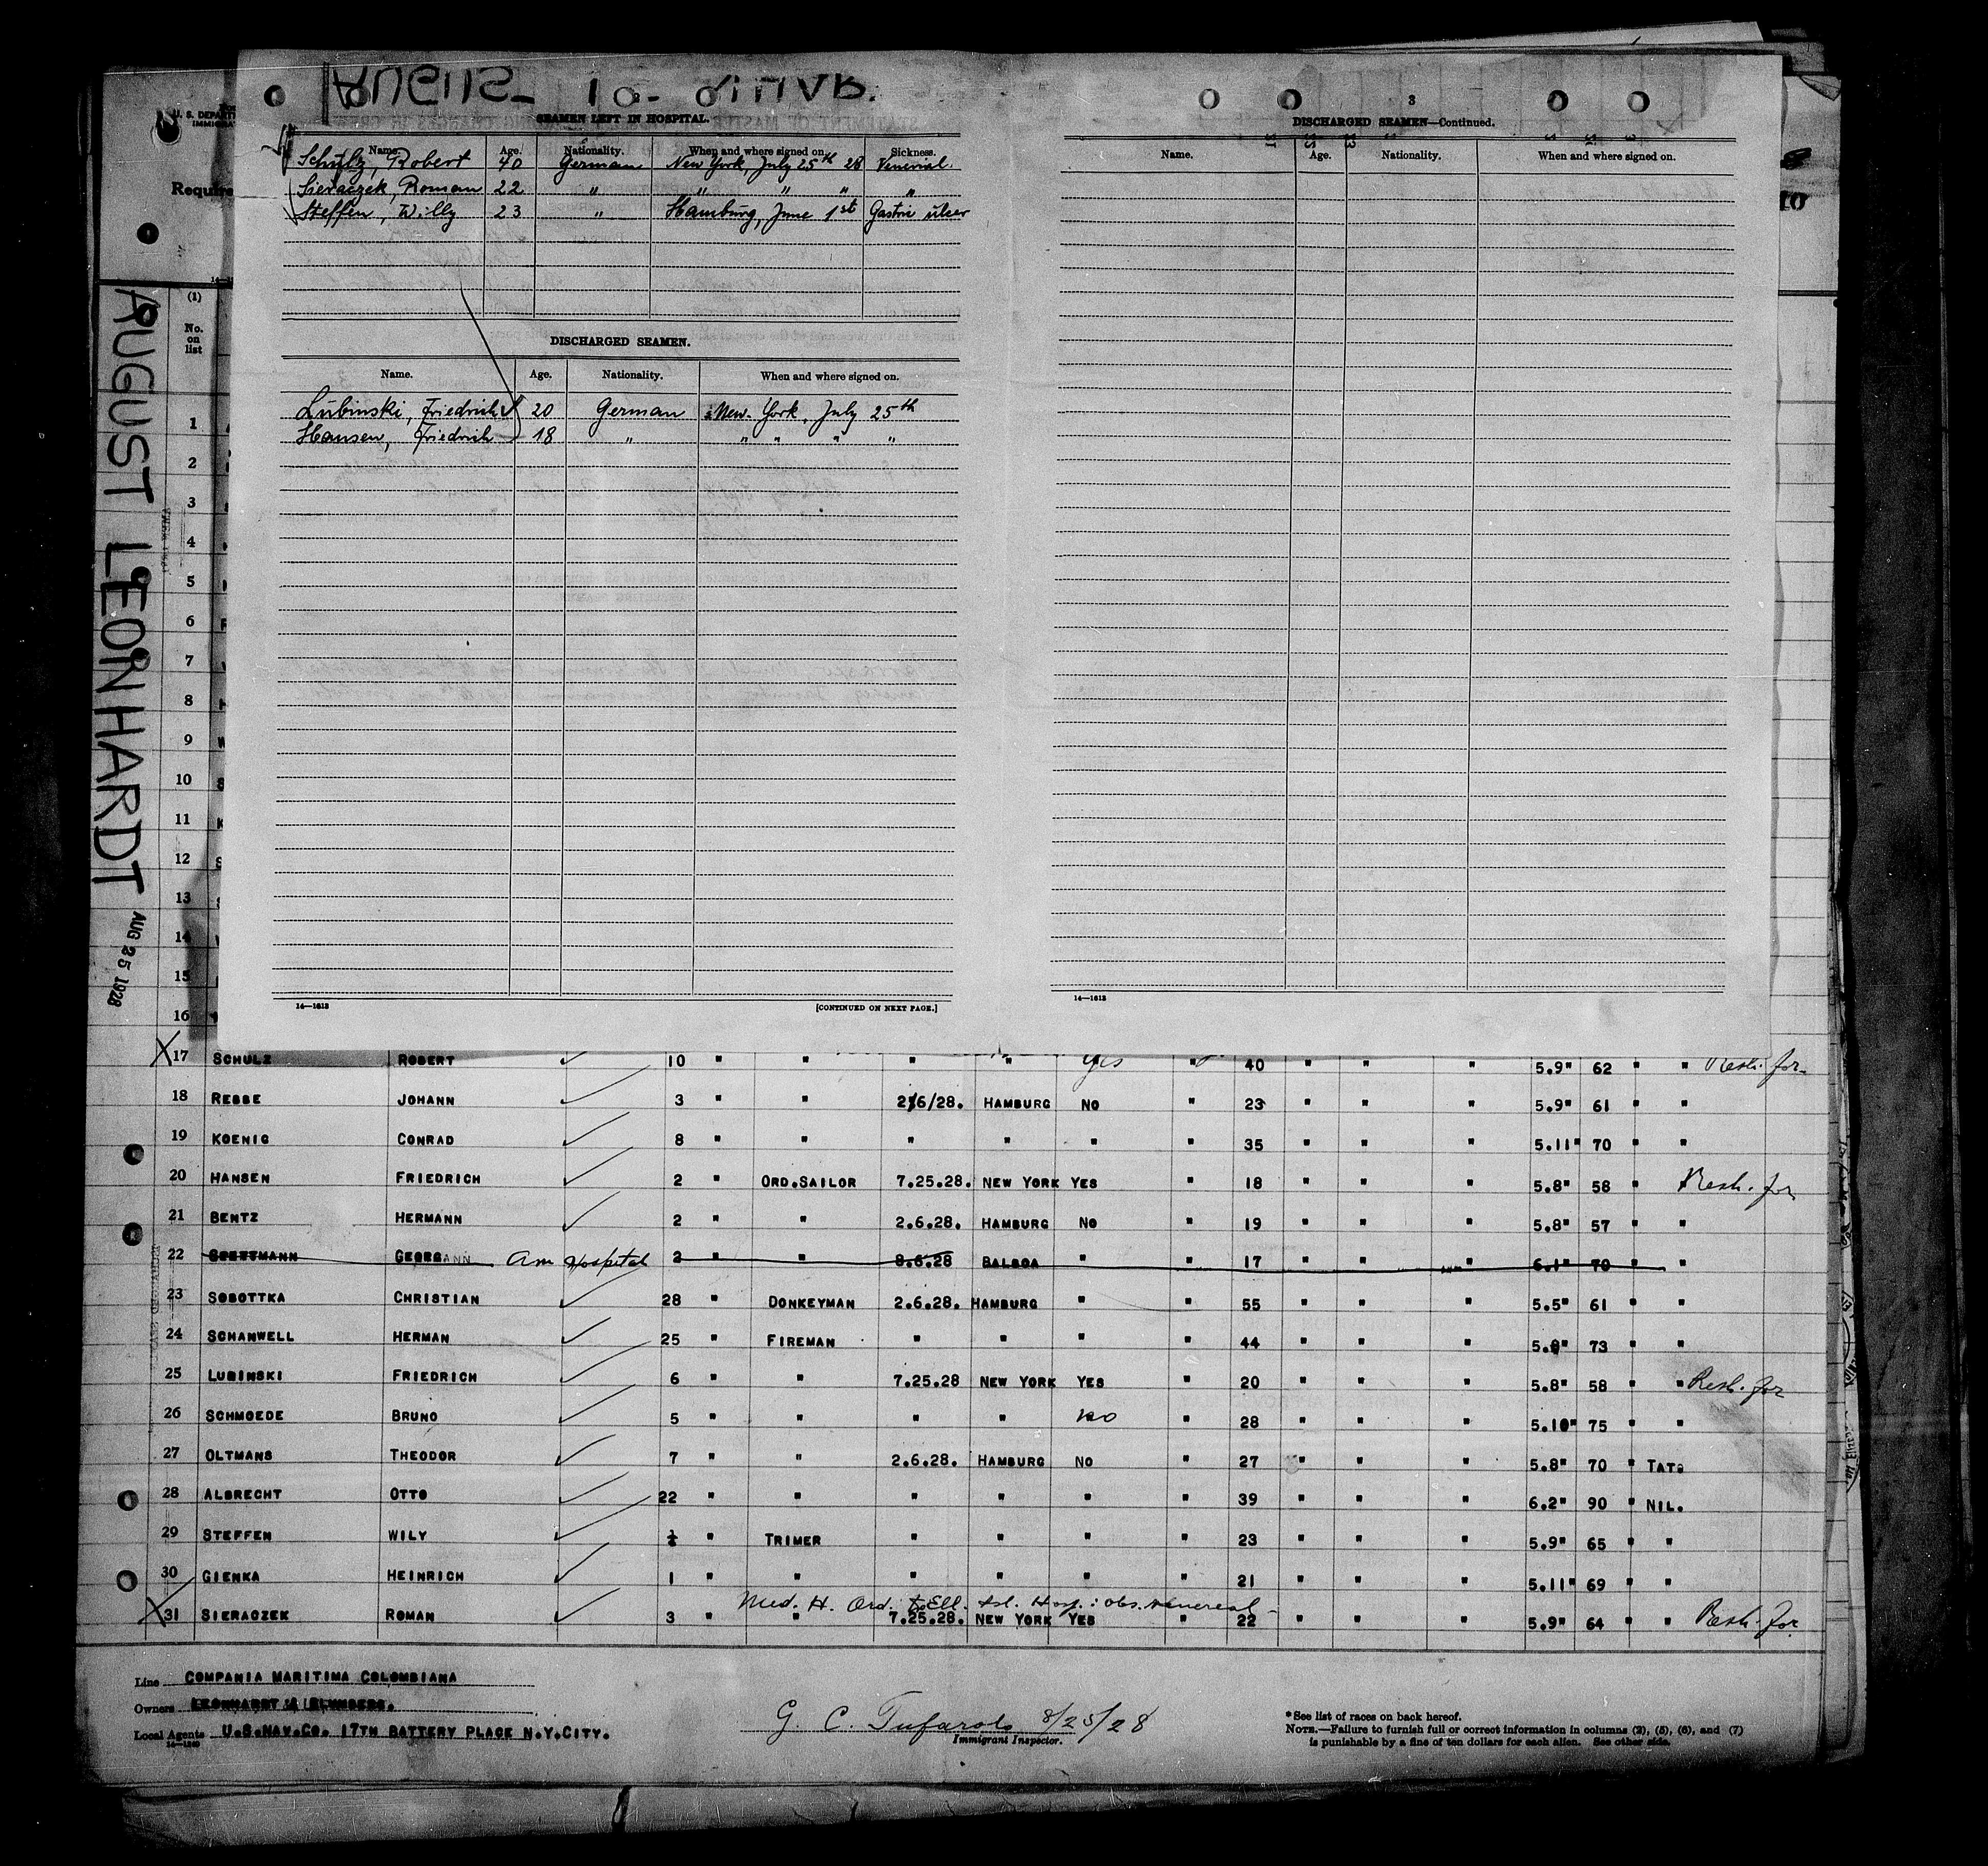 SEAMEN LEFT IN HOSPITAL.
Name. Age. Nationality. When and where signed on. Sickness.
Schulz, Robert 40 German New York, July 25th 28 Venerial.
Sieraczek, Roman 22 " " " " "
Steffen, Willy 23 " Hamburg, June 1st Gastric ulcer
DISCHARGED SEAMEN.
Name. Age. Nationality. When and where signed on.
Lubinski, Friedrich 20 German New-York, July 25th
Hansen, Friedrich 18 " " " " "
14—1613 [CONTINUED ON NEXT PAGE.]
3
DISCHARGED SEAMEN—Continued.
Name. Age. Nationality. When and where signed on.
14—1613
U. S. DEPART
IMMIGRA
Require
AUGUST LEONHARDT
AUG 25 1928
(1)
No. on list
1
2
3
4
5
6
7
8
9
10
11
12
13
14
15
16
17 SCHULZ ROBERT 10 " " " " Yes " 40 " " " 5.9" 62 " "
18 REBBE JOHANN 3 " " 2/6/28. HAMBURG NO " 23 " " " 5.9" 61 " "
19 KOENIG CONRAD 8 " " " " " " 35 " " " 5.11" 70 " "
20 HANSEN FRIEDRICH 2 " ORD.SAILOR 7.25.28. NEW YORK YES " 18 " " " 5.8" 58 "
21 BENTZ HERMANN 2 " " 2.6.28. HAMBURG NO " 19 " " " 5.8" 57 " "
22 GEORG Am Hospital 2 " " 8.6.28 BALBOA " " 17 " " " 6.1" 70 " "
23 SOBOTTKA CHRISTIAN 28 " DONKEYMAN 2.6.28. HAMBURG " " 55 " " " 5.5" 61 " "
24 SCHANWELL HERMAN 25 " FIREMAN " " " " 44 " " " 73 " "
25 LUBINSKI FRIEDRICH 6 " " 7.25.28 NEW YORK YES " 20 " " " 5.8" 58 " "
26 SCHMOEDE BRUNO 5 " " " " no " 28 " " " 5.10" 75 " "
27 OLTMANS THEODOR 7 " " 2.6.28. HAMBURG NO " 27 " " " 5.8" 70 " TAT.
28 ALBRECHT OTTO 22 " " " " " " 39 " " " 6.2" 90 " NIL.
29 STEFFEN WILY " TRIMER " " " " 23 " " " 5.9" 65 " "
30 GIENKA HEINRICH 1 " " " " " " 21 " " " 5.11" 69 " "
Med. H. Ord. to Ell. Isl. Hosp.: obs. venereal
31 SIERACZEK ROMAN 3 " " 7.25.28. NEW YORK YES " 22 " " " 5.9" 64 " "
Line COMPANIA MARITIMA COLOMBIANA
Owners LEONHARDT & BLUMBERG.
Local Agents U.S.NAV.CO. 17TH BATTERY PLACE N.Y.CITY.
G. C. Tufarolo 8/25/28
Immigrant Inspector.
*See list of races on back hereof.
NOTE.—Failure to furnish full or correct information in columns (2), (5), (6), and (7)
is punishable by a fine of ten dollars for each alien. See other side.